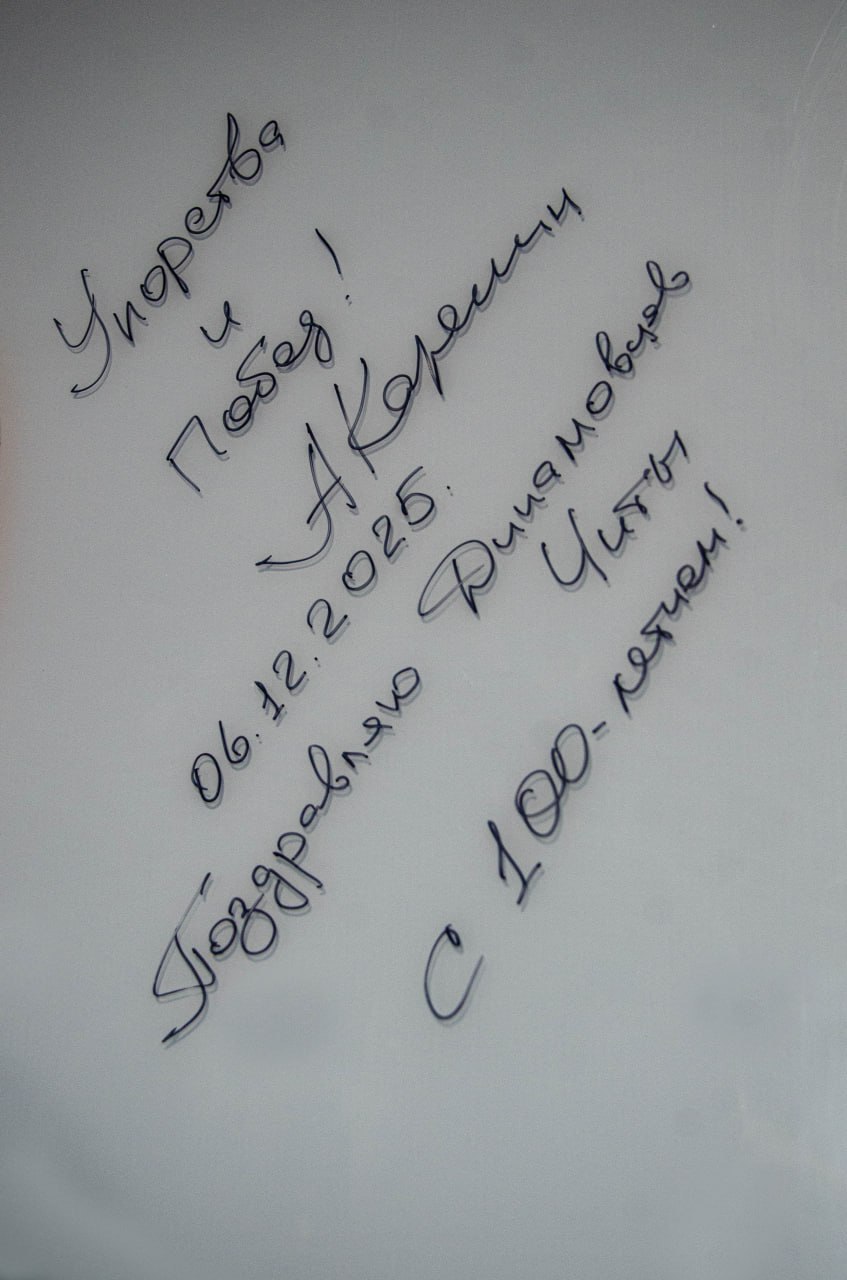 Упорства
и
Побед!
А Карелин
06.12.2025.
Поздравляю Динамовцев
Читы
С 100-летием!